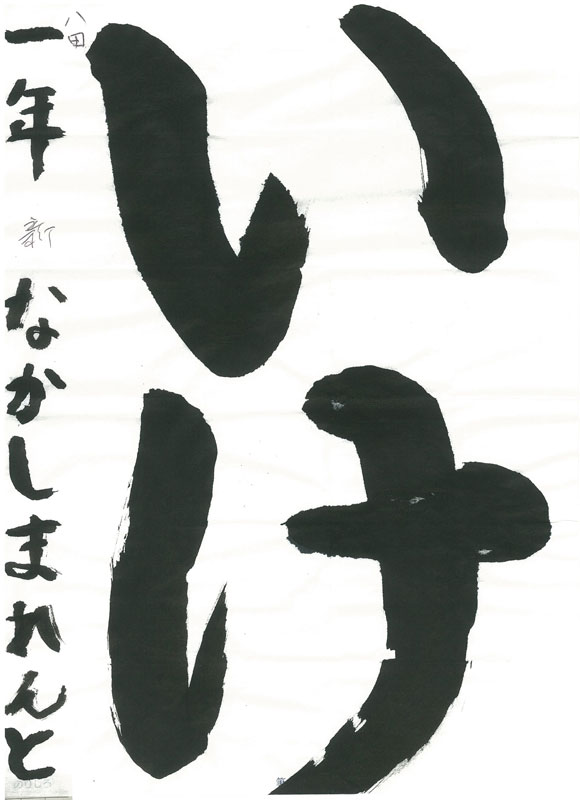 いけ
八田
一年 新 なかしまれんと